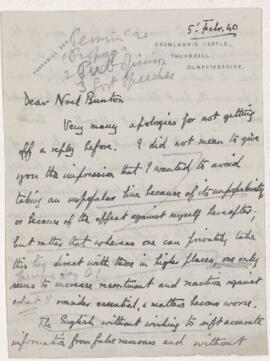 5th Febr. 40
DRUMLANRIG CASTLE,
THORNHILL,
DUMFRIESSHIRE.
1 Propag
2 Publ opinion
3 Govt speeches
Dear Noel Buxton
Very many apologies for not getting
off a reply before. I did not mean to give
you the impression that I wanted to avoid
taking an unpopular line because of its unpopularity
or because of the effect against myself hereafter,
but rather that whereas one can privately take
this line direct with those in higher places, one only
seems to increase resentment and reaction against
what I consider essential, & matters become worse.
The English without wishing to sift accurate
information from false rumours and without